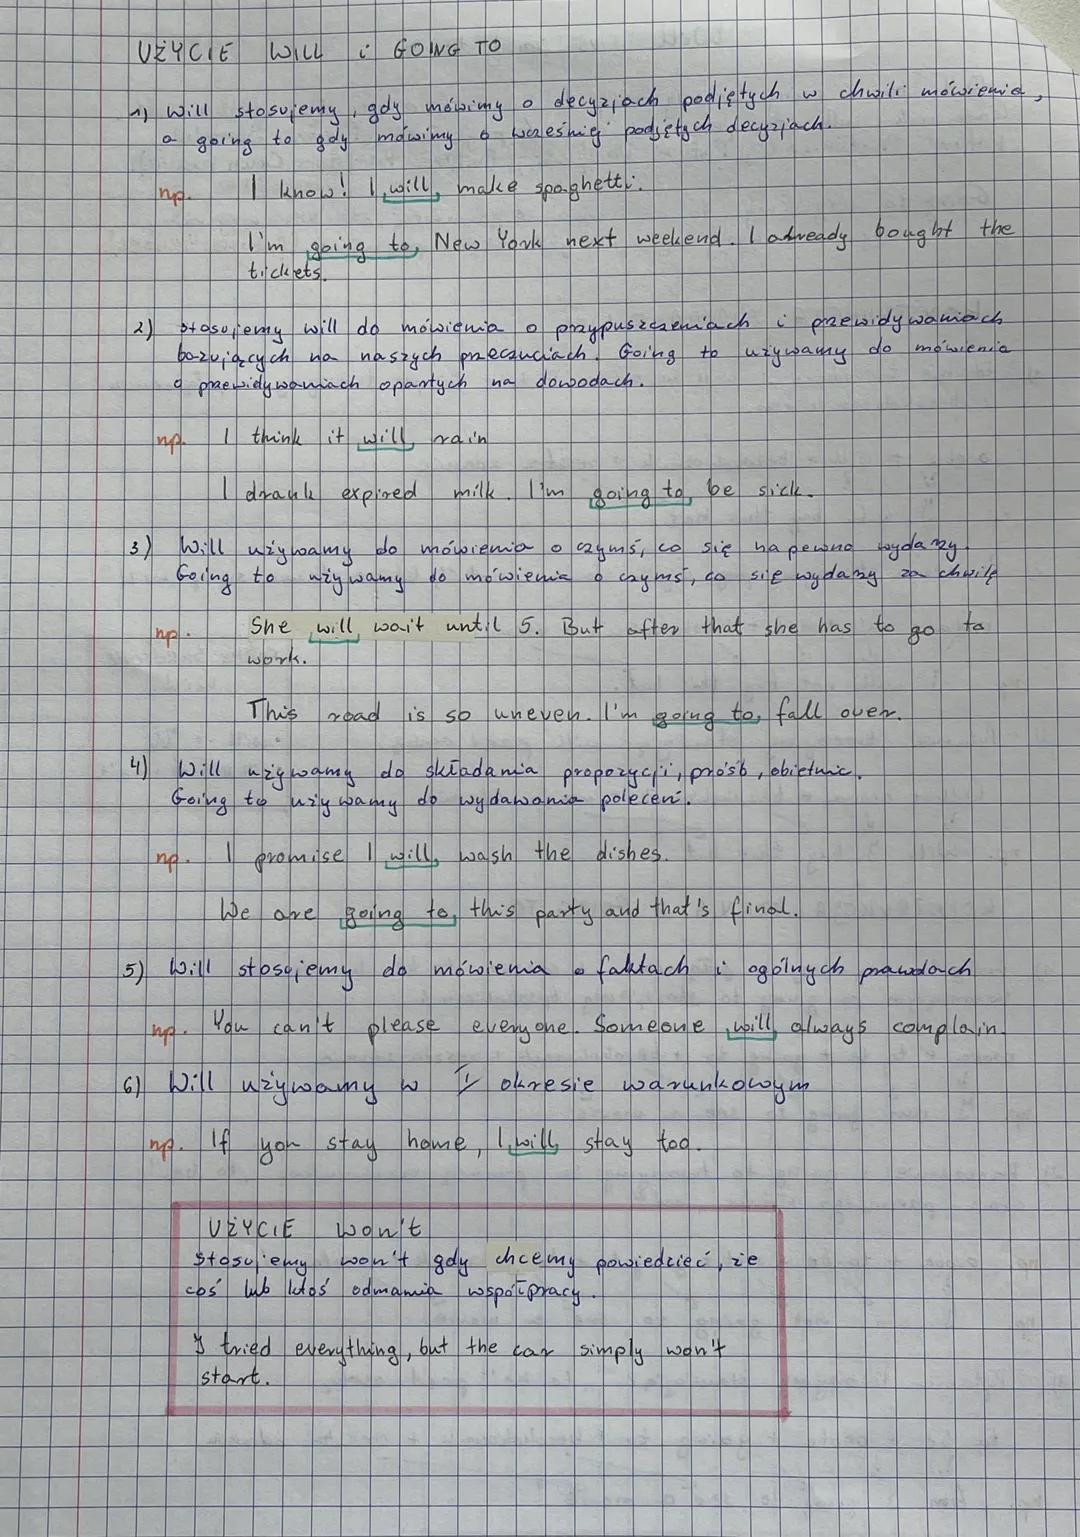 UŻYCIE WILL i GOING TO
1) Will stosujemy, gdy mówimy o decyzjach podjętych w chwili mówienia,
a going to gdy mówimy o wcześniej podjętych decyzjach.
np. I know! I will make spaghetti.
I'm going to New York next weekend. I already bought the
tickets.
2) stosujemy will do mówienia o przypuszczeniach i przewidywaniach
bazujących na naszych przeczuciach. Going to używamy do mówienia
o przewidywaniach opartych na dowodach.
np. I think it will rain
I drank expired milk. I'm going to be sick.
3) Will używamy do mówienia o czymś, co się na pewno wydarzy.
Going to używamy do mówienia o czymś, co się wydarzy za chwilę
np. She will wait until 5. But after that she has to go to
work.
This road is so uneven. I'm going to fall over.
4) Will używamy do składania propozycji, próśb, obietnic.
Going to używamy do wydawania poleceń.
np. I promise I will wash the dishes.
We are going to this party and that's final.
5) Will stosujemy do mówienia o faktach i ogólnych prawdach
np. You can't please everyone. Someone will always complain.
6) Will używamy w I okresie warunkowym
np. If you stay home, I will stay too.
UŻYCIE won't
stosujemy won't gdy chcemy powiedzieć, że
coś lub ktoś odmawia współpracy.
I tried everything, but the car simply won't
start.